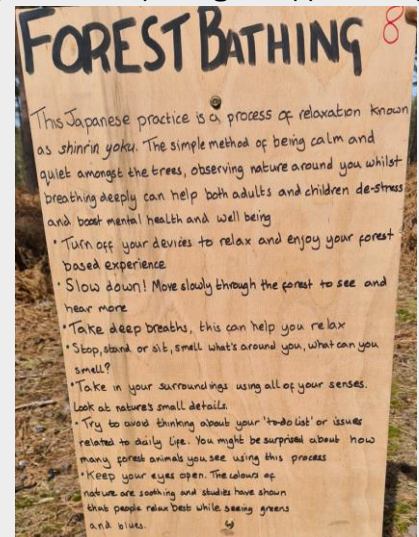 FOREST BATHING
8
This Japanese practice is a process of relaxation known
as shinrin yoku. The simple method of being calm and
quiet amongst the trees, observing nature around you whilst
breathing deeply can help both adults and children de-stress
and boost mental health and well being
• Turn off your devices to relax and enjoy your forest
based experience
• Slow down! Move slowly through the forest to see and
hear more
• Take deep breaths, this can help you relax
• Stop, stand or sit, smell what's around you, what can you
smell?
• Take in your surroundings using all of your senses.
Look at nature's small details.
• Try to avoid thinking about your 'to-do list' or issues
related to daily life. You might be surprised about how
many forest animals you see using this process
• Keep your eyes open. The colours of
nature are soothing and studies have shown
that people relax best while seeing greens
and blues.